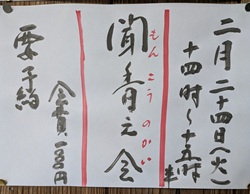 二月二十四日(火)
十四時〜十五時半
聞香之会
もんこうのかい
要予約
会費 一五〇〇円